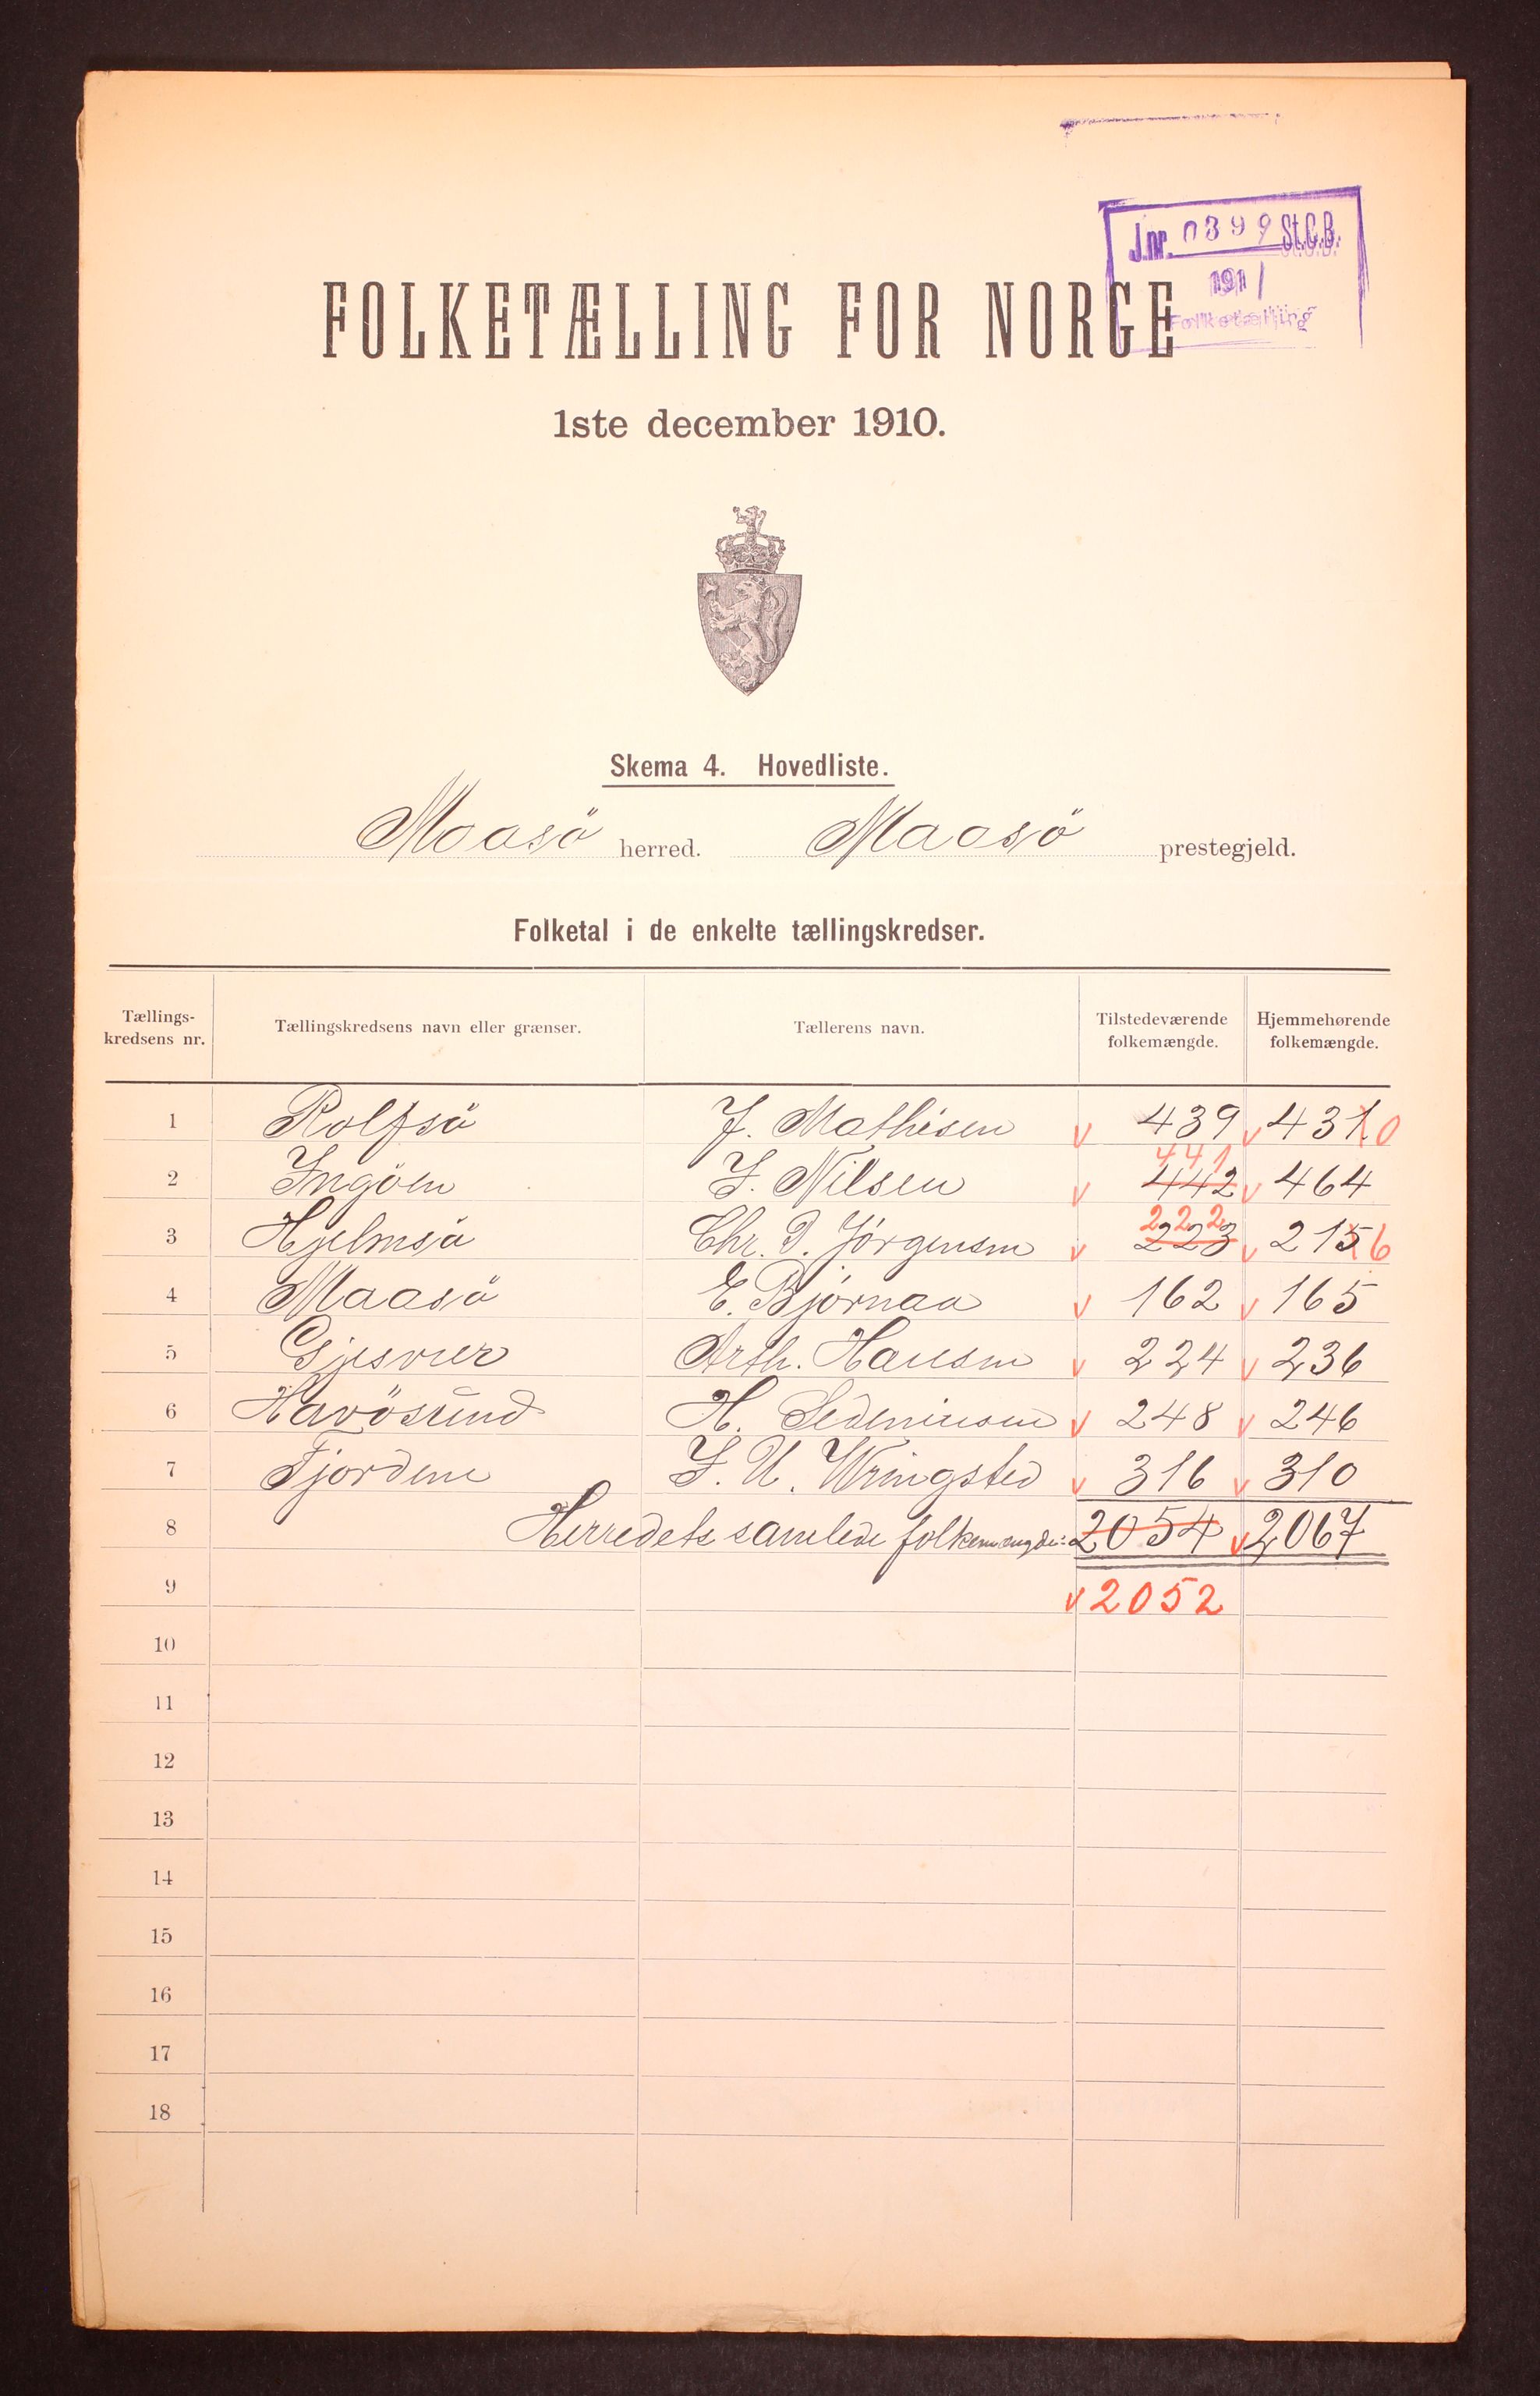 J.nr. 0399 St.C.B.
1911
Folketælling
FOLKETÆLLING FOR NORGE
1ste december 1910.
Skema 4. Hovedliste.
Maasö herred. Maasö prestegjeld.
Folketal i de enkelte tællingskredser.
Tællings-kredsens nr. Tællingskredsens navn eller grænser. Tællerens navn. Tilstedeværende folkemængde. Hjemmehørende folkemængde.
1 Rolfsö J. Mathisen v 439 v 431 0
441
2 Ingöen J. Nilsen v 442 v 464
222
3 Hjelmsö Chr. D. Jörgensen v 223 v 215 6
4 Maasö E. Bjørnaa v 162 v 165
5 Gjesvær Arth. Hansen v 224 v 236
6 Havösund H. v 248 v 246
7 Fjordene J. U. Wringsted v 316 v 310
8 Herredets samlede folkemængde: 2054 v 2067
9 v 2052
10
11
12
13
14
15
16
17
18